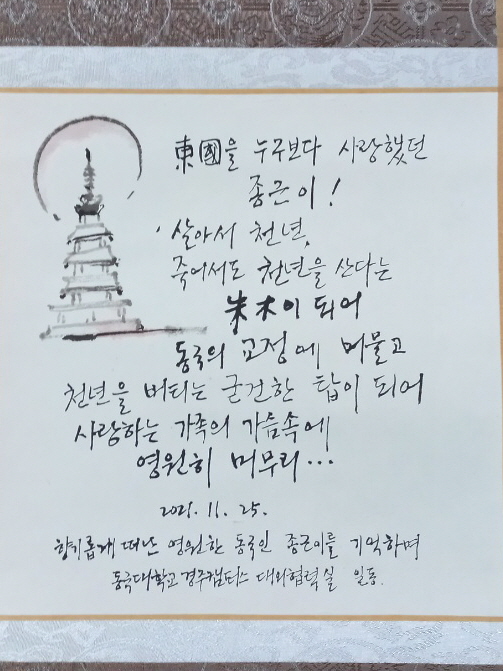 東國을 누구보다 사랑했던
종근이!
살아서 천년,
죽어서도 천년을 산다는
朱木이 되어
동국의 교정에 머물고
천년을 버티는 굳건한 탑이 되어
사랑하는 가족의 가슴속에
영원히 머무리...
2021. 11. 25.
향기롭게 떠난 영원한 동국인 종근이를 기억하며
동국대학교 경주캠퍼스 대외협력실 일동.